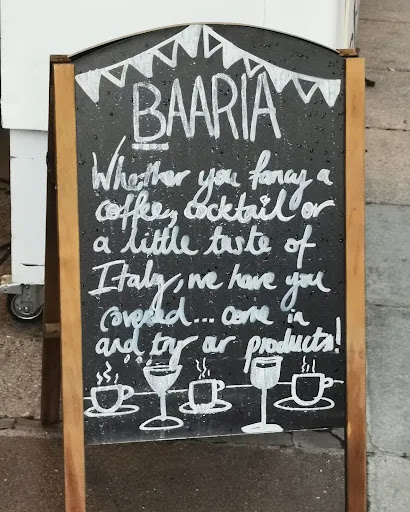 BAARÌA
Whether you fancy a
coffee, cocktail or
a little taste of
Italy, we have you
covered... come in
and try our products!